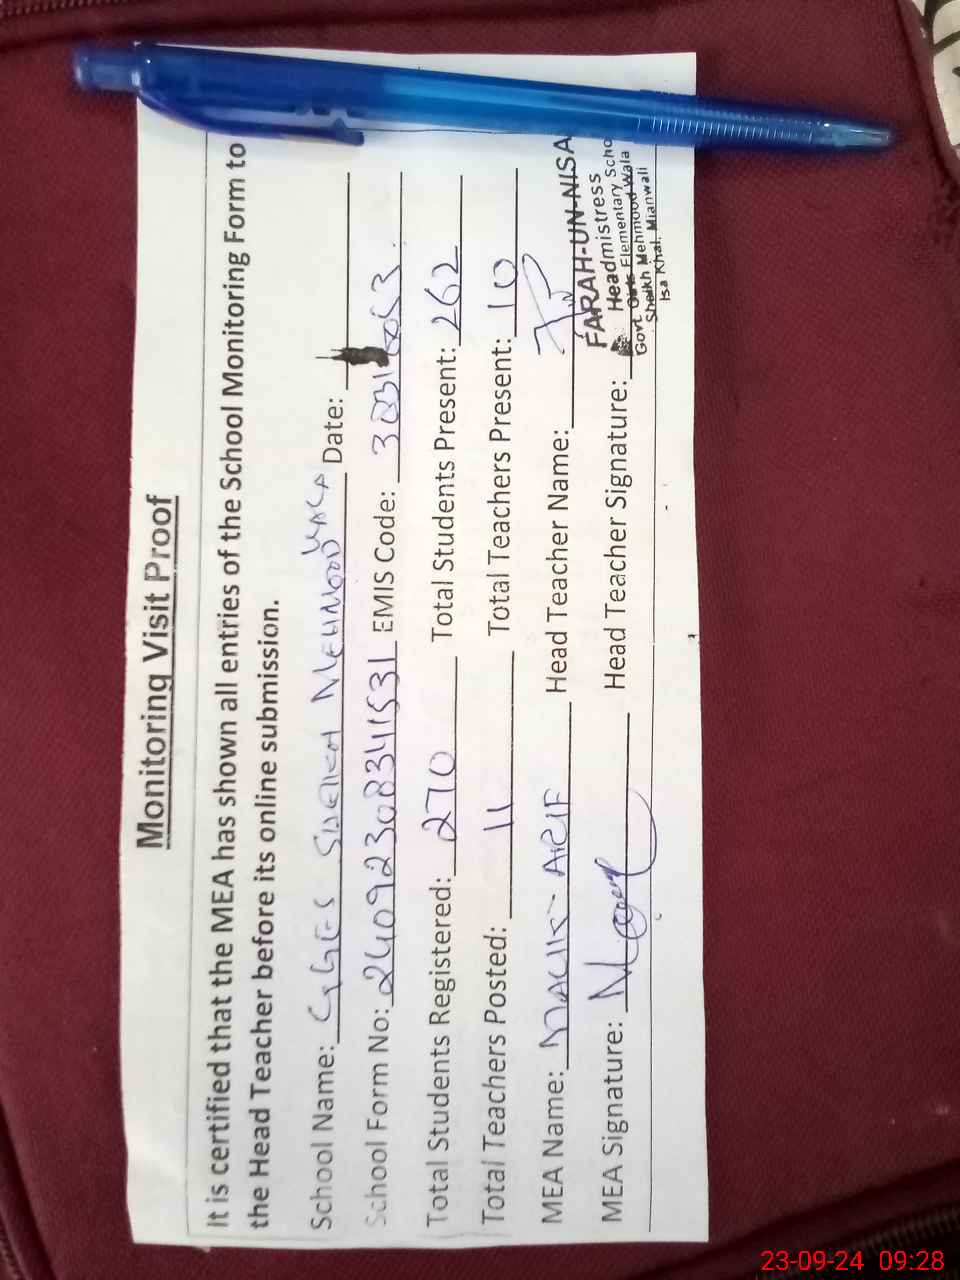 Monitoring Visit Proof
It is certified that the MEA has shown all entries of the School Monitoring Form to
the Head Teacher before its online submission.
School Name: GGES SHEIKH MEHMOOD WALA Date:
School Form No: 240923083411531 EMIS Code:
Total Students Registered: 270 Total Students Present: 262
Total Teachers Posted: 11 Total Teachers Present: 10
MEA Name: MALIK ARIF Head Teacher Name:
MEA Signature: Head Teacher Signature:
FARAH-UN-NISA
Headmistress
Govt Girls Elementary Scho
Sheikh Mehmood Wala
Isa Khal, Mianwali
23-09-24 09:28